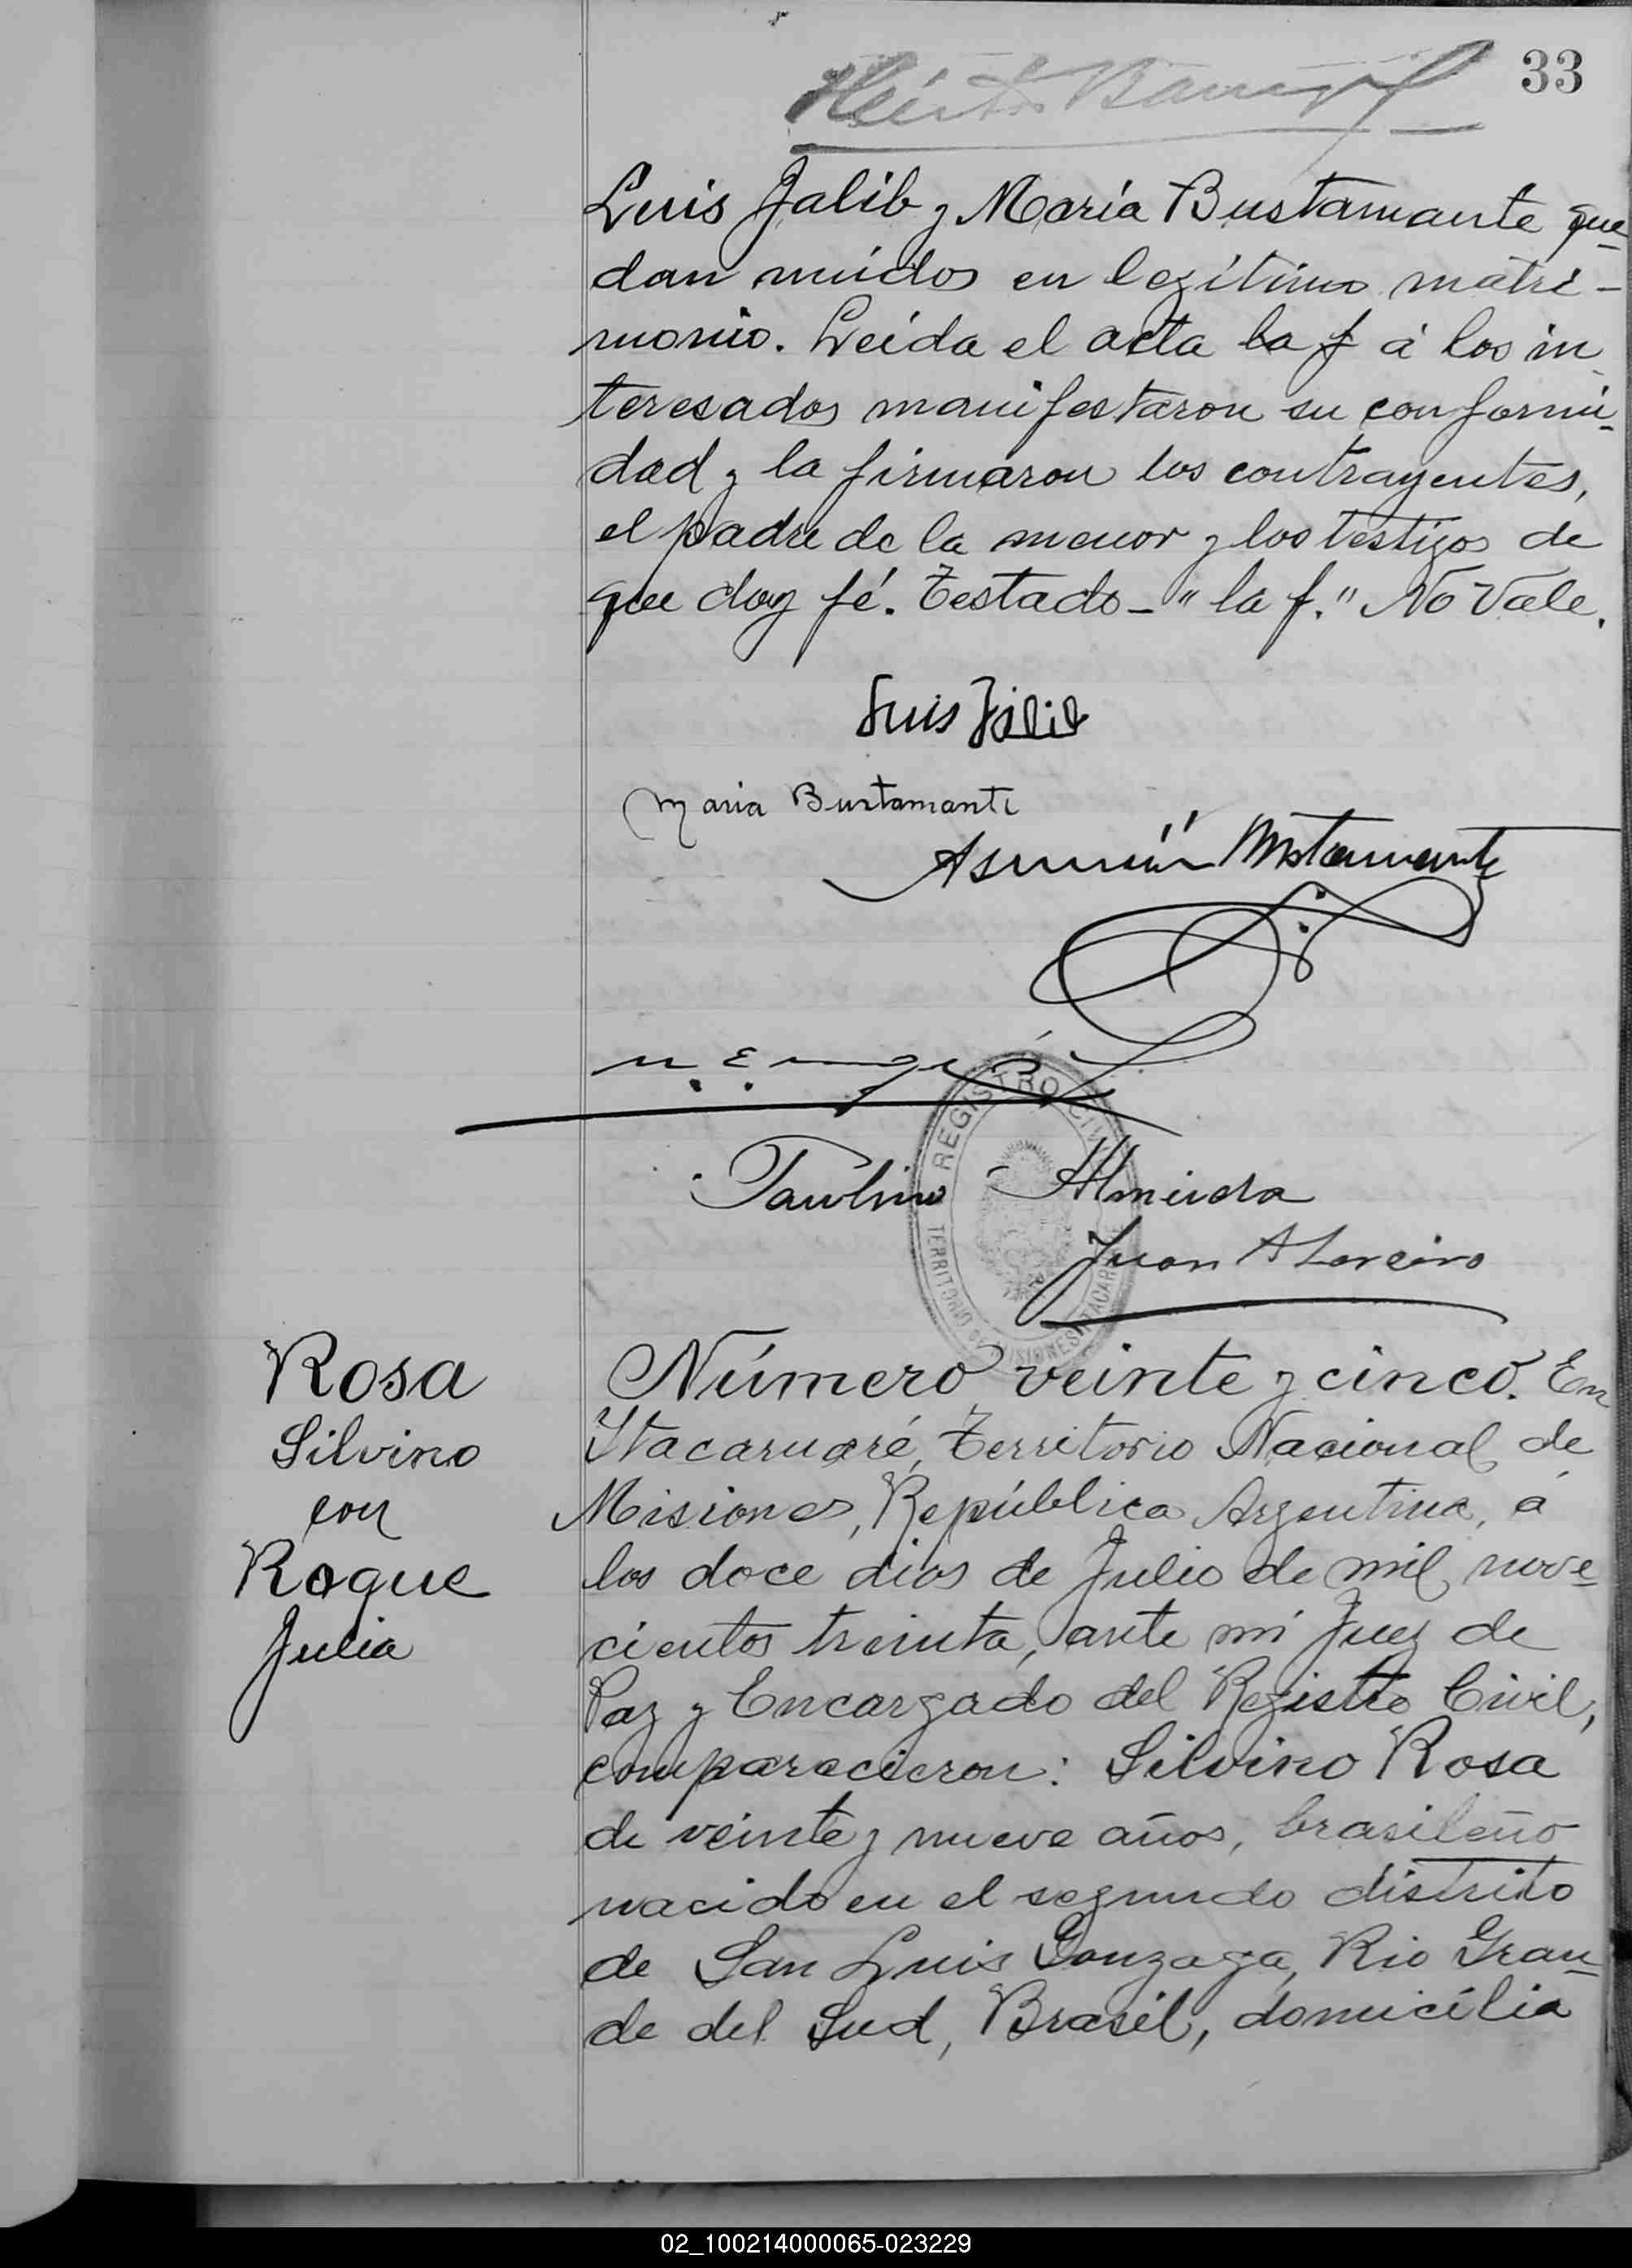 33
Luis Jalib y María Bustamante que
dan unidos en legítimo matri-
monio. Leída el acta la f á los in
teresados manifestaron su conformi-
dad y la firmaron los contrayentes,
el padre de la menor y los testigos de
que doy fé. Testado - "la f." No Vale.
Luis Jalib
Maria Bustamante
Asunción Bustamante
Paulino Almeida
Juan A Loreiro
REGISTRO CIVIL
TERRITORIO DE MISIONES
Rosa
Silvino
con
Roque
Julia
Número veinte y cinco. En
Itacaruaré, Territorio Nacional de
Misiones, República Argentina, á
los doce dias de Julio de mil nove-
cientos treinta, ante mí Juez de
Paz y Encargado del Registro Civil,
comparecieron: Silvino Rosa
de veinte y nueve años, brasileño
nacido en el segundo distrito
de San Luis Gonzaga, Rio Gran-
de del Sud, Brasil, domicilia
02_100214000065-023229